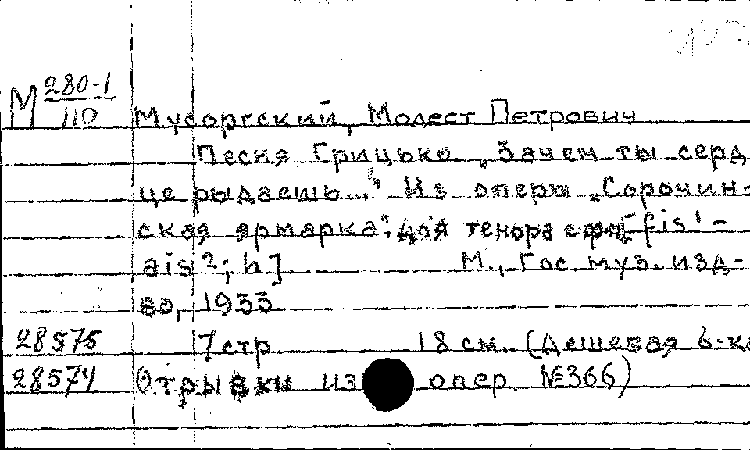 М 280-1
110
Мусоргский, Модест Петрович
Песня Грицько „Зачем ты серд-
це рыдаешь..." Из оперы „Сорочин-
ская ярмарка": для тенора с фп. [fis¹ -
ais²; h] М., Гос. муз. изд-
во, 1933
28575 7 стр 18 см. (Дешевая б-ка
28574 Отрывки из опер №366)